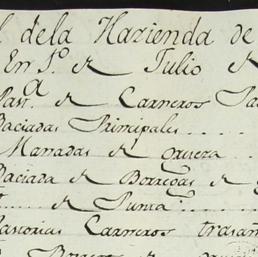 l dela Hazienda de
En 1º de Julio de
Past.ª de Carneros Pa
Baciadas Principales
Manadas de oveveza
Baciada de Borregas de
de Punta
Pastorias Carneros trasa
Borregos de